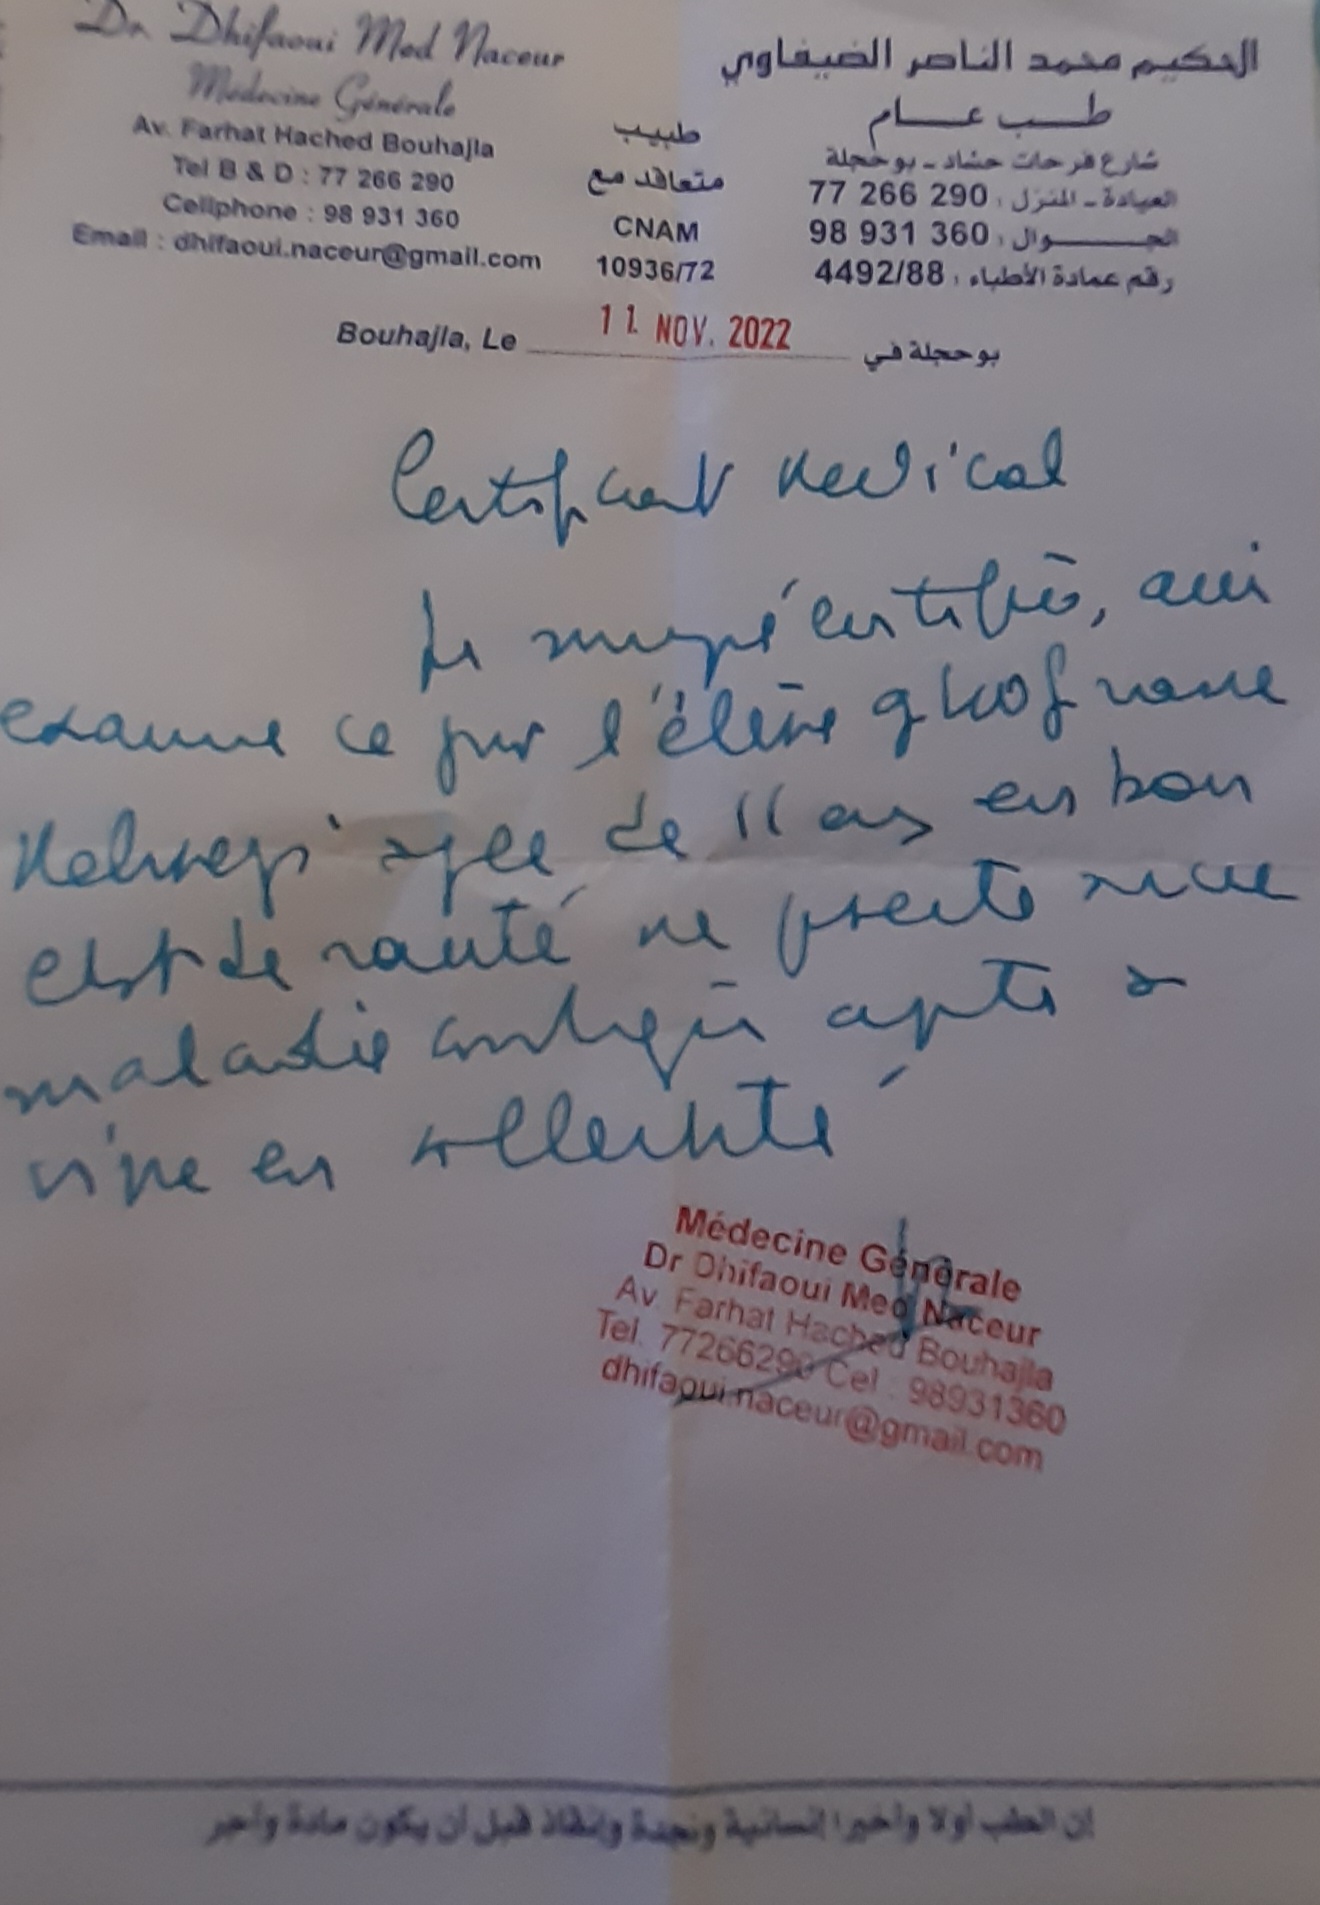 Dr. Dhifaoui Med Naceur
Médecine Générale
Av. Farhat Hached Bouhajla
Tel B & D : 77 266 290
Cellphone : 98 931 360
Email : dhifaoui.naceur@gmail.com
طبيب
متعاقد مع
CNAM
10936/72
الحكيم محمد الناصر الضيفاوي
طب عام
شارع فرحات حشاد - بوحجلة
العيادة - المنزل : 77 266 290
الجوال : 98 931 360
رقم عمادة الأطباء : 4492/88
Bouhajla, Le 11 NOV. 2022 بوحجلة في
Certificat Medical
Je certifie,
examine ce jour l'élève ghofrane
agee de 11 ans en bon
etat de santé ne presente
maladie contagieuse apte a
vivre en collectivité
Médecine Générale
Dr Dhifaoui Med Naceur
Av. Farhat Hached Bouhajla
Tel. 77266290 Cel : 98931360
dhifaoui.naceur@gmail.com
إن الطب أولا وأخيرا إنسانية ونجدة وإنقاذ قبل أن يكون مادة وأجر